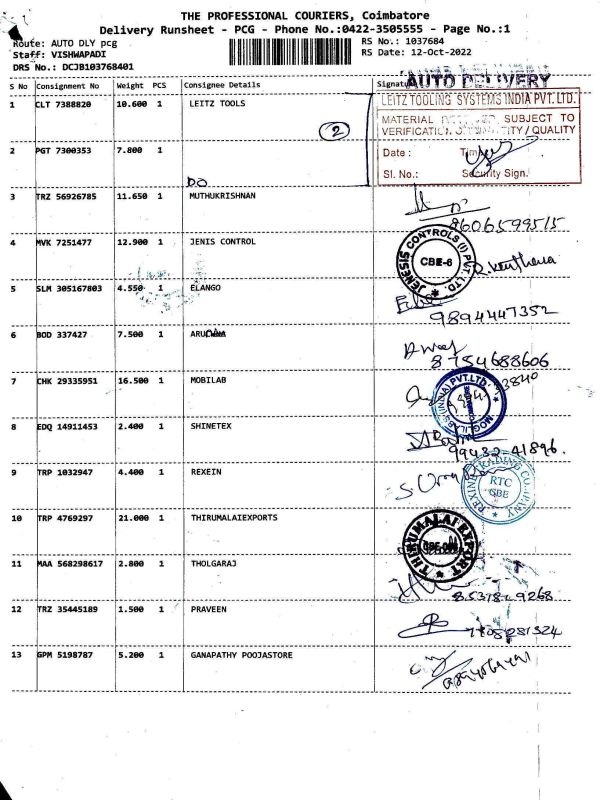 THE PROFESSIONAL COURIERS, Coimbatore
Delivery Runsheet - PCG - Phone No.:0422-3505555 - Page No.:1
Route: AUTO DLY pcg RS No.: 1037684
Staff: VISHWAPADI RS Date: 12-Oct-2022
DRS No.: DCJB103768401
S No Consignment No Weight PCS Consignee Details Signature
AUTO DELIVERY
1 CLT 7388820 10.600 1 LEITZ TOOLS
LEITZ TOOLING SYSTEMS INDIA PVT. LTD.
MATERIAL SUBJECT TO
VERIFICATION QUALITY
2
2 PGT 7300353 7.800 1
Date : Time
Sl. No.: Security Sign.
DO
3 TRZ 56926785 11.650 1 MUTHUKRISHNAN
8606599515
4 MVK 7251477 12.900 1 JENIS CONTROL
JENESIS CONTROLS (I) PVT LTD.
CBE-6
5 SLM 305167803 4.550 1 ELANGO
9894447352
6 BOD 337427 7.500 1
8754688606
7 CHK 29335951 16.500 1 MOBILAB
PVT.LTD.
8 EDQ 14911453 2.400 1 SHINETEX
99432 41896
9 TRP 1032947 4.400 1 REXEIN
TRADING COMPANY
RTC
CBE
10 TRP 4769297 21.000 1 THIRUMALAIEXPORTS
THIRUMALAI EXPORT
11 MAA 568298617 2.800 1 THOLGARAJ
12 TRZ 35445189 1.500 1 PRAVEEN
13 GPM 5198787 5.200 1 GANAPATHY POOJASTORE